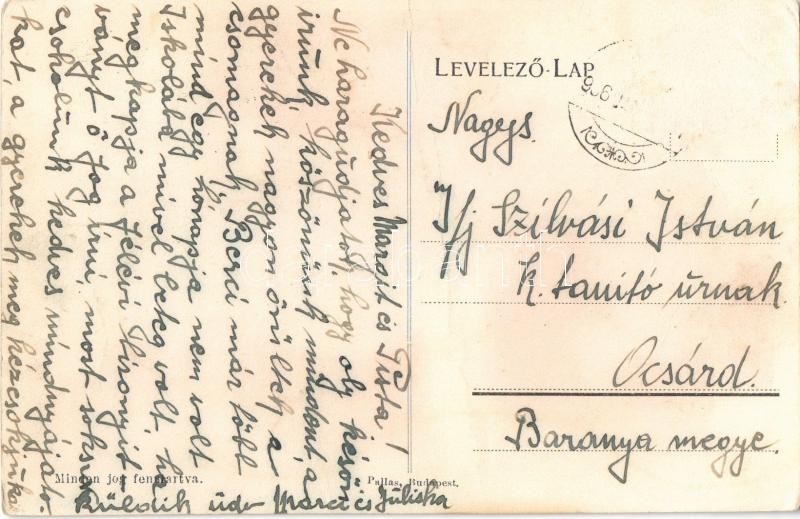 Kedves Margit és Pista!
Ne haragudjatok, hogy oly későn
irunk, köszönünk mindent, a
gyerekek nagyon örültek a
csomagnak. Berci már több
mind egy hónapja nem volt
Iskolába mivel beteg volt, ha
megkapja a félévi bizonyít
ványt ő fog irni, most sokszor
csokolunk kedves mindnyájato-
kat, a gyerekek meg kézcsókjukat
küldik üdv Marci és Juliska
Minden jog fenntartva.
Pallas, Budapest.
LEVELEZŐ-LAP
Nagys.
Ifj Szilvási István
k. tanító úrnak
Ocsárd.
Baranya megye.